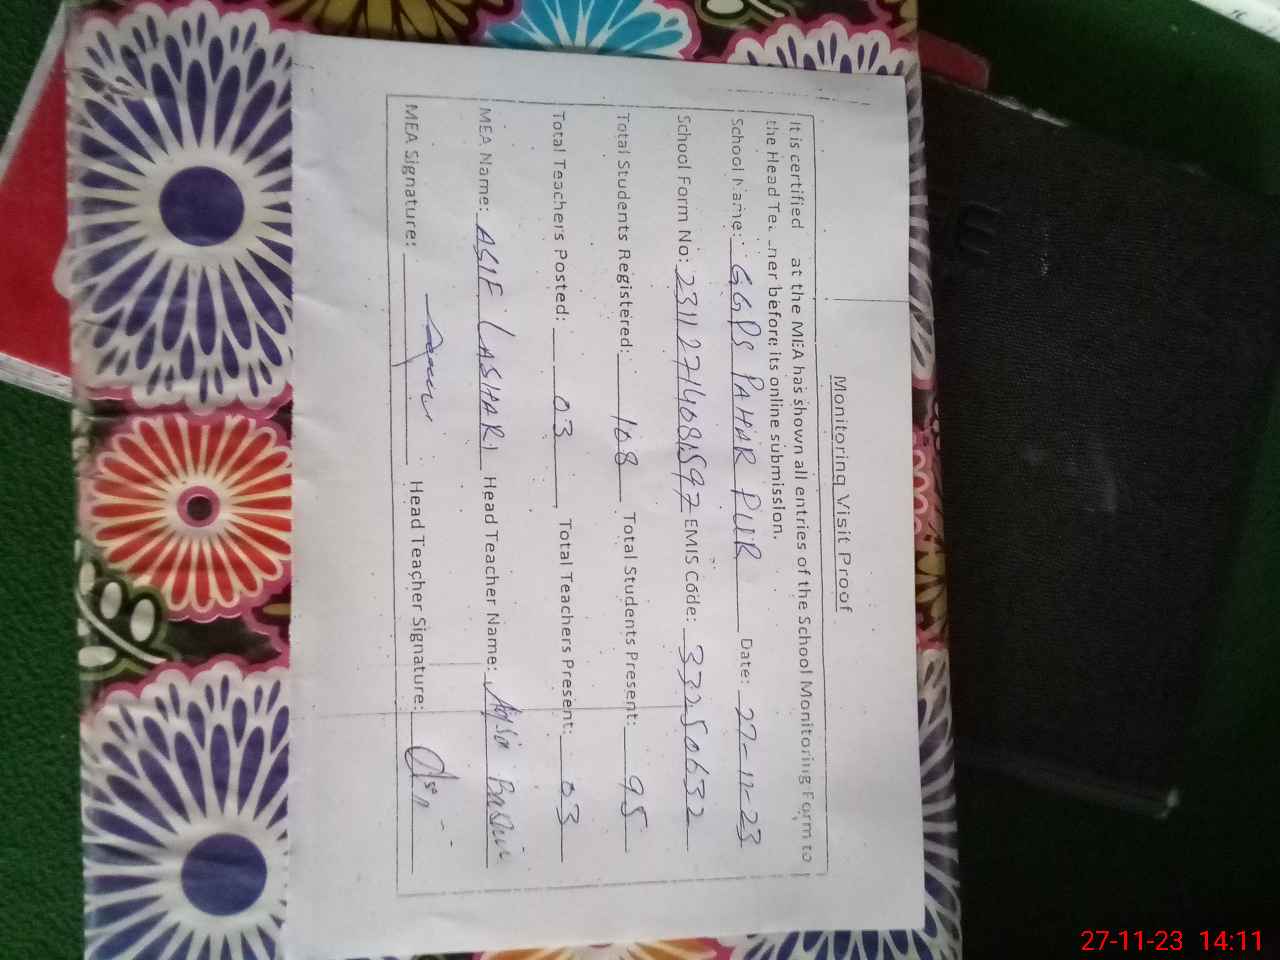 Monitoring Visit Proof
It is certified at the MEA has shown all entries of the School Monitoring Form to
the Head before its online submission.
School Name: GGPS PAHAR PUR Date: 27-11-23
School Form No: 23112714081597 EMIS Code: 33250632
Total Students Registered: 108 Total Students Present: 95
Total Teachers Posted: 03 Total Teachers Present: 03
MEA Name: ASIF LASHARI Head Teacher Name:
MEA Signature: Head Teacher Signature:
27-11-23 14:11